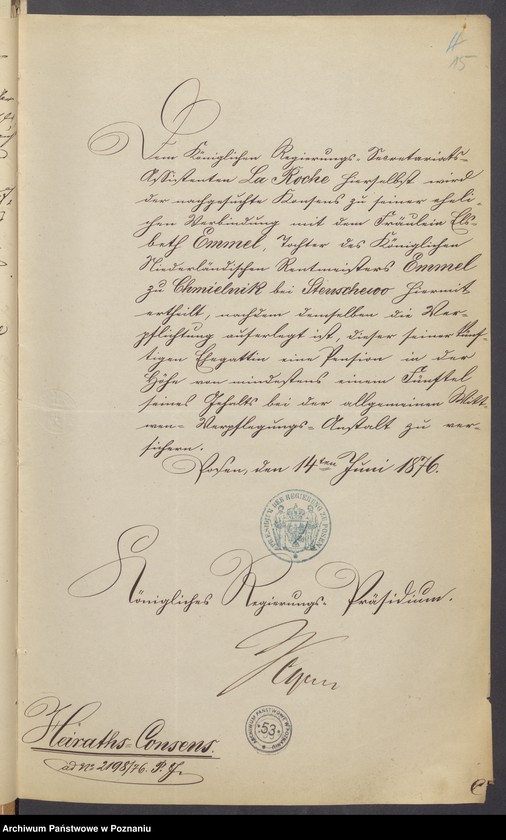 15
Dem Königlichen Regierungs-Secretariats-
Assistenten La Roche hierselbst wird
der nachgesuchte Konsens zu seiner eheli-
chen Verbindung mit dem Fräulein Els-
beth Emmel, Tochter des Königlichen
Niederländischen Rentmeisters Emmel
zu Chmielnik bei Stenschewo hiermit
ertheilt, nachdem demselben die Ver-
pflichtung auferlegt ist, dieser seiner künf-
tigen Ehegattin eine Pension in der
Höhe von mindestens einem Fünftel
seines Gehalts bei der allgemeinen Witt-
wen-Verpflegungs-Anstalt zu ver-
sichern.
Posen, den 14ten Juni 1876.
PRAESIDIUM DER REGIERUNG ZU POSEN
Königliches Regierungs-Präsidium.
Heiraths-Consens.
ad No 2198/76. P. J.
ARCHIWUM PAŃSTWOWE W POZNANIU
53
Archiwum Państwowe w Poznaniu